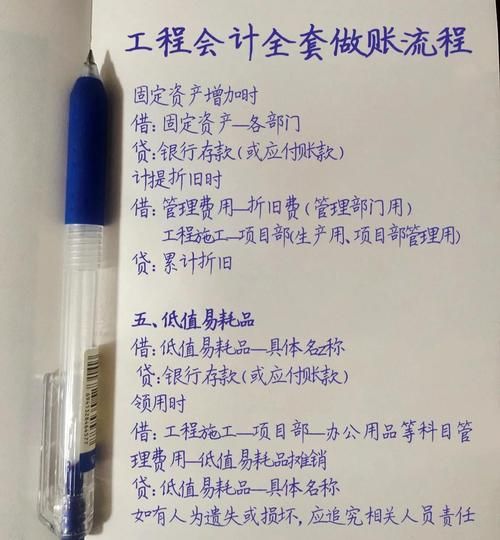 工程会计全套做账流程
固定资产增加时
借:固定资产—各部门
贷:银行存款(或应付账款)
计提折旧时
借:管理费用—折旧费(管理部门用)
工程施工—项目部(生产用、项目部管理用)
贷:累计折旧
五、低值易耗品
借:低值易耗品—具体名称
贷:银行存款(或应付账款)
领用时
借:工程施工—项目部—办公用品等科目管
理费用—低值易耗品摊销
贷:低值易耗品—具体名称
如有人为遗失或损坏,应追究相关人员责任